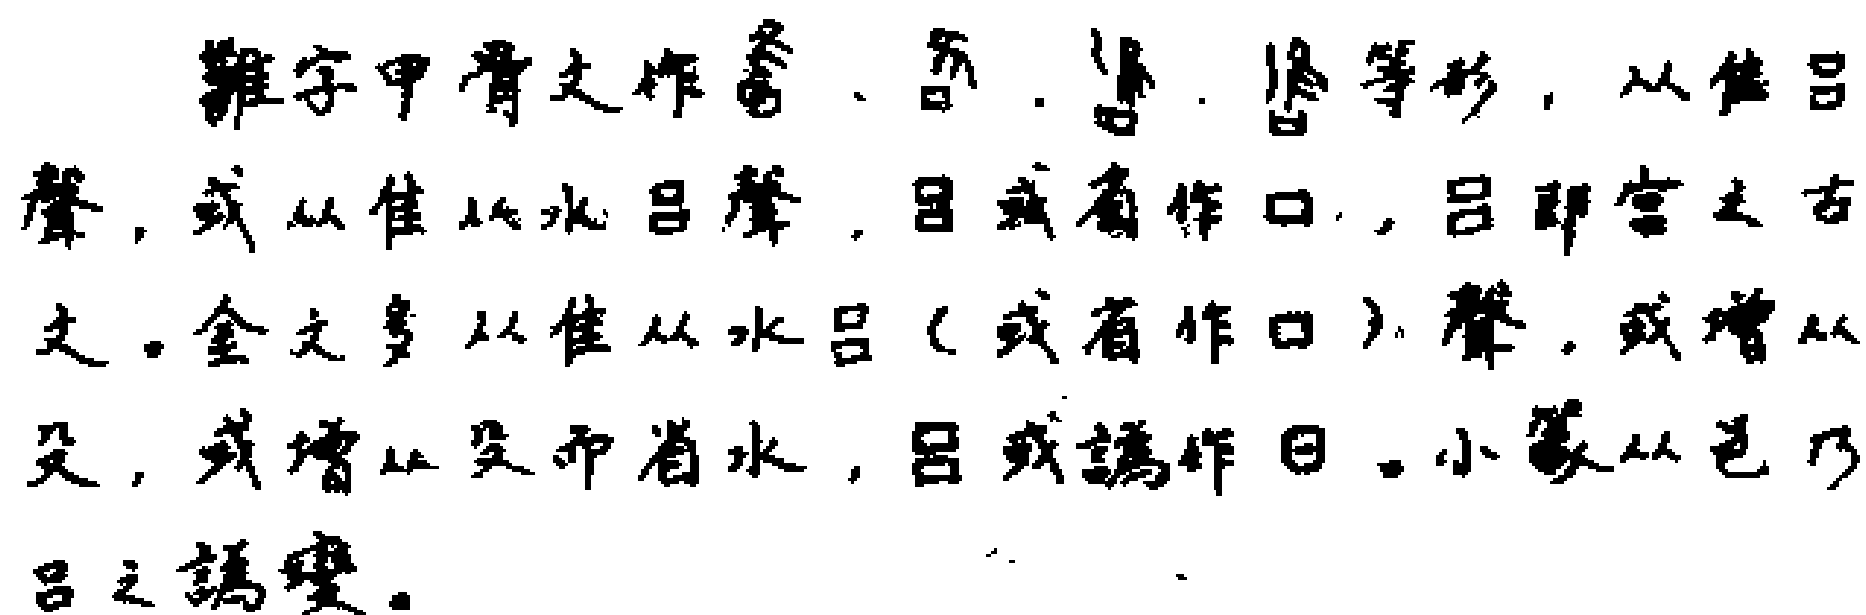 雝字甲骨文作、、、等形，从隹吕
聲，或从隹从水吕聲，吕或省作口，吕即宫之古
文。金文多从隹从水吕（或省作口）聲，或增从
殳，或增从殳而省水，吕或譌作日。小篆从邑乃
吕之譌變。